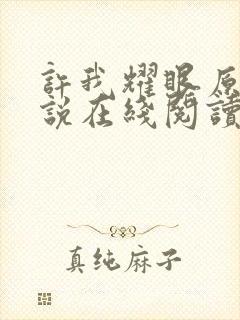 許我耀眼原
說在綫閱讀
真纯麻子